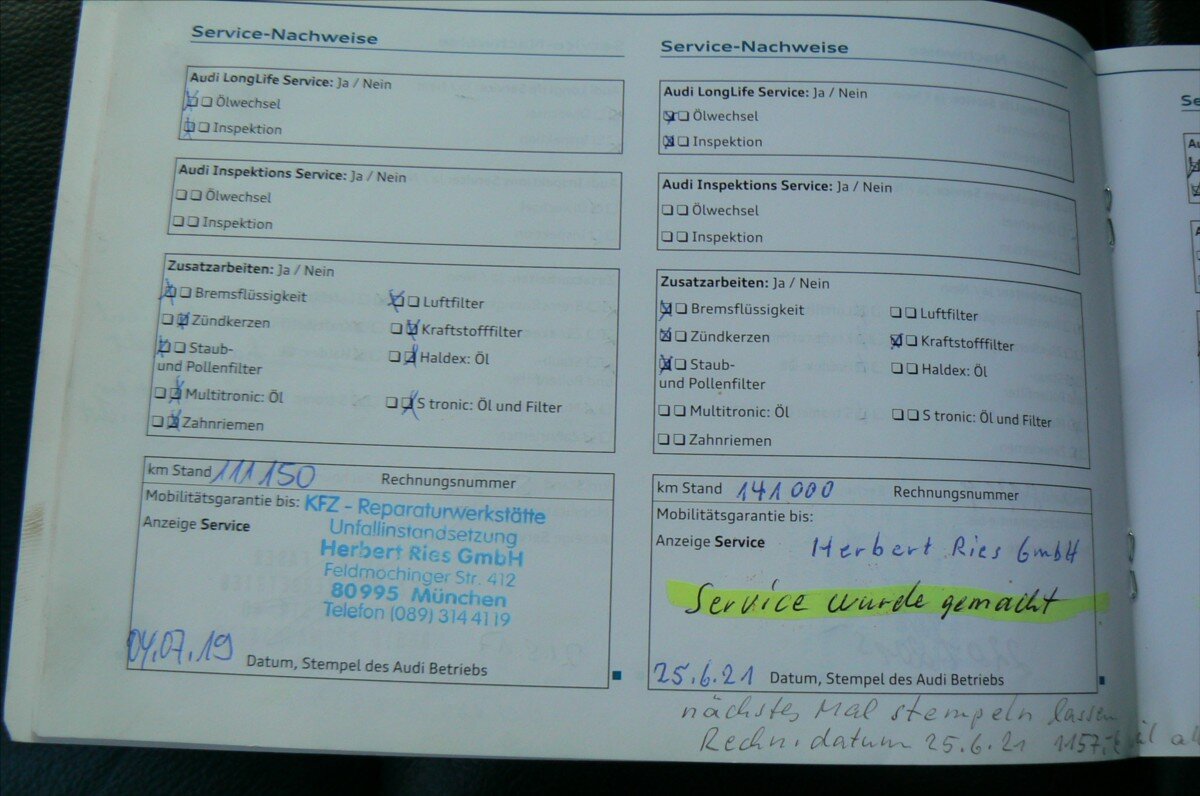 Service-Nachweise
Audi LongLife Service: Ja / Nein
Ölwechsel
Inspektion
Audi Inspektions Service: Ja / Nein
Ölwechsel
Inspektion
Zusatzarbeiten: Ja / Nein
Bremsflüssigkeit
Luftfilter
Zündkerzen
Kraftstofffilter
Staub-
und Pollenfilter
Haldex: Öl
Multitronic: Öl
S tronic: Öl und Filter
Zahnriemen
km Stand 111150 Rechnungsnummer
Mobilitätsgarantie bis:
Anzeige Service
KFZ - Reparaturwerkstätte
Unfallinstandsetzung
Herbert Ries GmbH
Feldmochinger Str. 412
80995 München
Telefon (089) 314 41 19
04.07.19 Datum, Stempel des Audi Betriebs
Service-Nachweise
Audi LongLife Service: Ja / Nein
Ölwechsel
Inspektion
Audi Inspektions Service: Ja / Nein
Ölwechsel
Inspektion
Zusatzarbeiten: Ja / Nein
Bremsflüssigkeit
Luftfilter
Zündkerzen
Kraftstofffilter
Staub-
und Pollenfilter
Haldex: Öl
Multitronic: Öl
S tronic: Öl und Filter
Zahnriemen
km Stand 141000 Rechnungsnummer
Mobilitätsgarantie bis:
Anzeige Service
Herbert Ries GmbH
Service wurde gemacht
25.6.21 Datum, Stempel des Audi Betriebs
nächstes Mal stempeln lassen
Rechn.datum 25.6.21